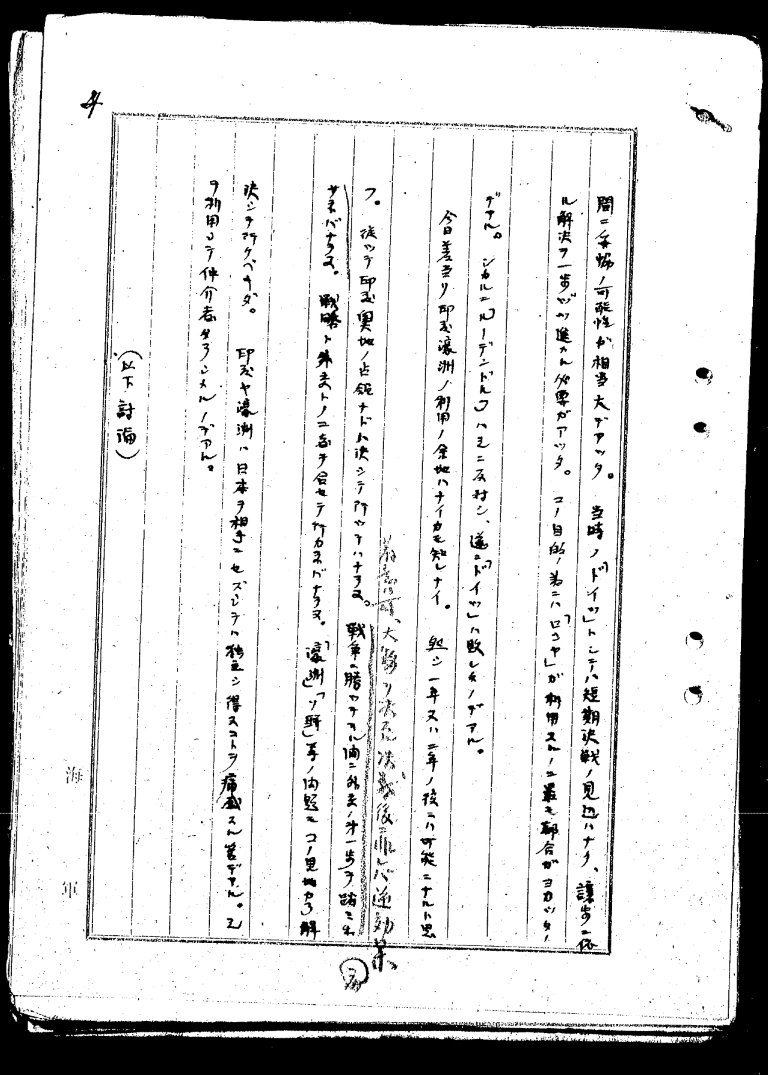 間ニ妥協ノ可能性ガ相当大デアッタ。 当時ノ「ドイツ」トシテハ短期決戦ノ見込ハナク、譲歩ニ依
ル解決ヲ一歩ヅツ進メル必要ガアッタ。 コノ目的ノ為ニハ「ロシヤ」ガ利用スルノニ最モ都合ガヨカッタノ
デアル。 シカルニ「ルーデンドルフ」ハ之ニ反対シ、遂ニ「ドイツ」ハ敗レタノデアル。
今日差当リ印度濠洲ノ利用ノ余地ハナイカモ知レナイ。 然シ一年又ハ二年ノ後ニハ可能ニナルト思
大物ヲ決意 決戦後ニ非レバ逆効果
フ。 従ッテ印度奥地ノ占領ナドハ決シテ行ッテハナラヌ。 戦争ニ勝ッテヰル間ニ外交ノ第一歩ヲ踏ミ出
サネバナラヌ。 戦略ト外交トノ二者ヲ合セテ行カネバナラヌ。「濠洲」「ソ聯」等ノ問題モコノ見地カラ解
決シテ行クベキダ。 印度ヤ濠洲ハ日本ヲ相手ニセズシテハ独立シ得ヌコトヲ痛感スル筈デアル。之
ヲ利用シテ仲介者タラシメルノデアル。
(以下討論)
海軍